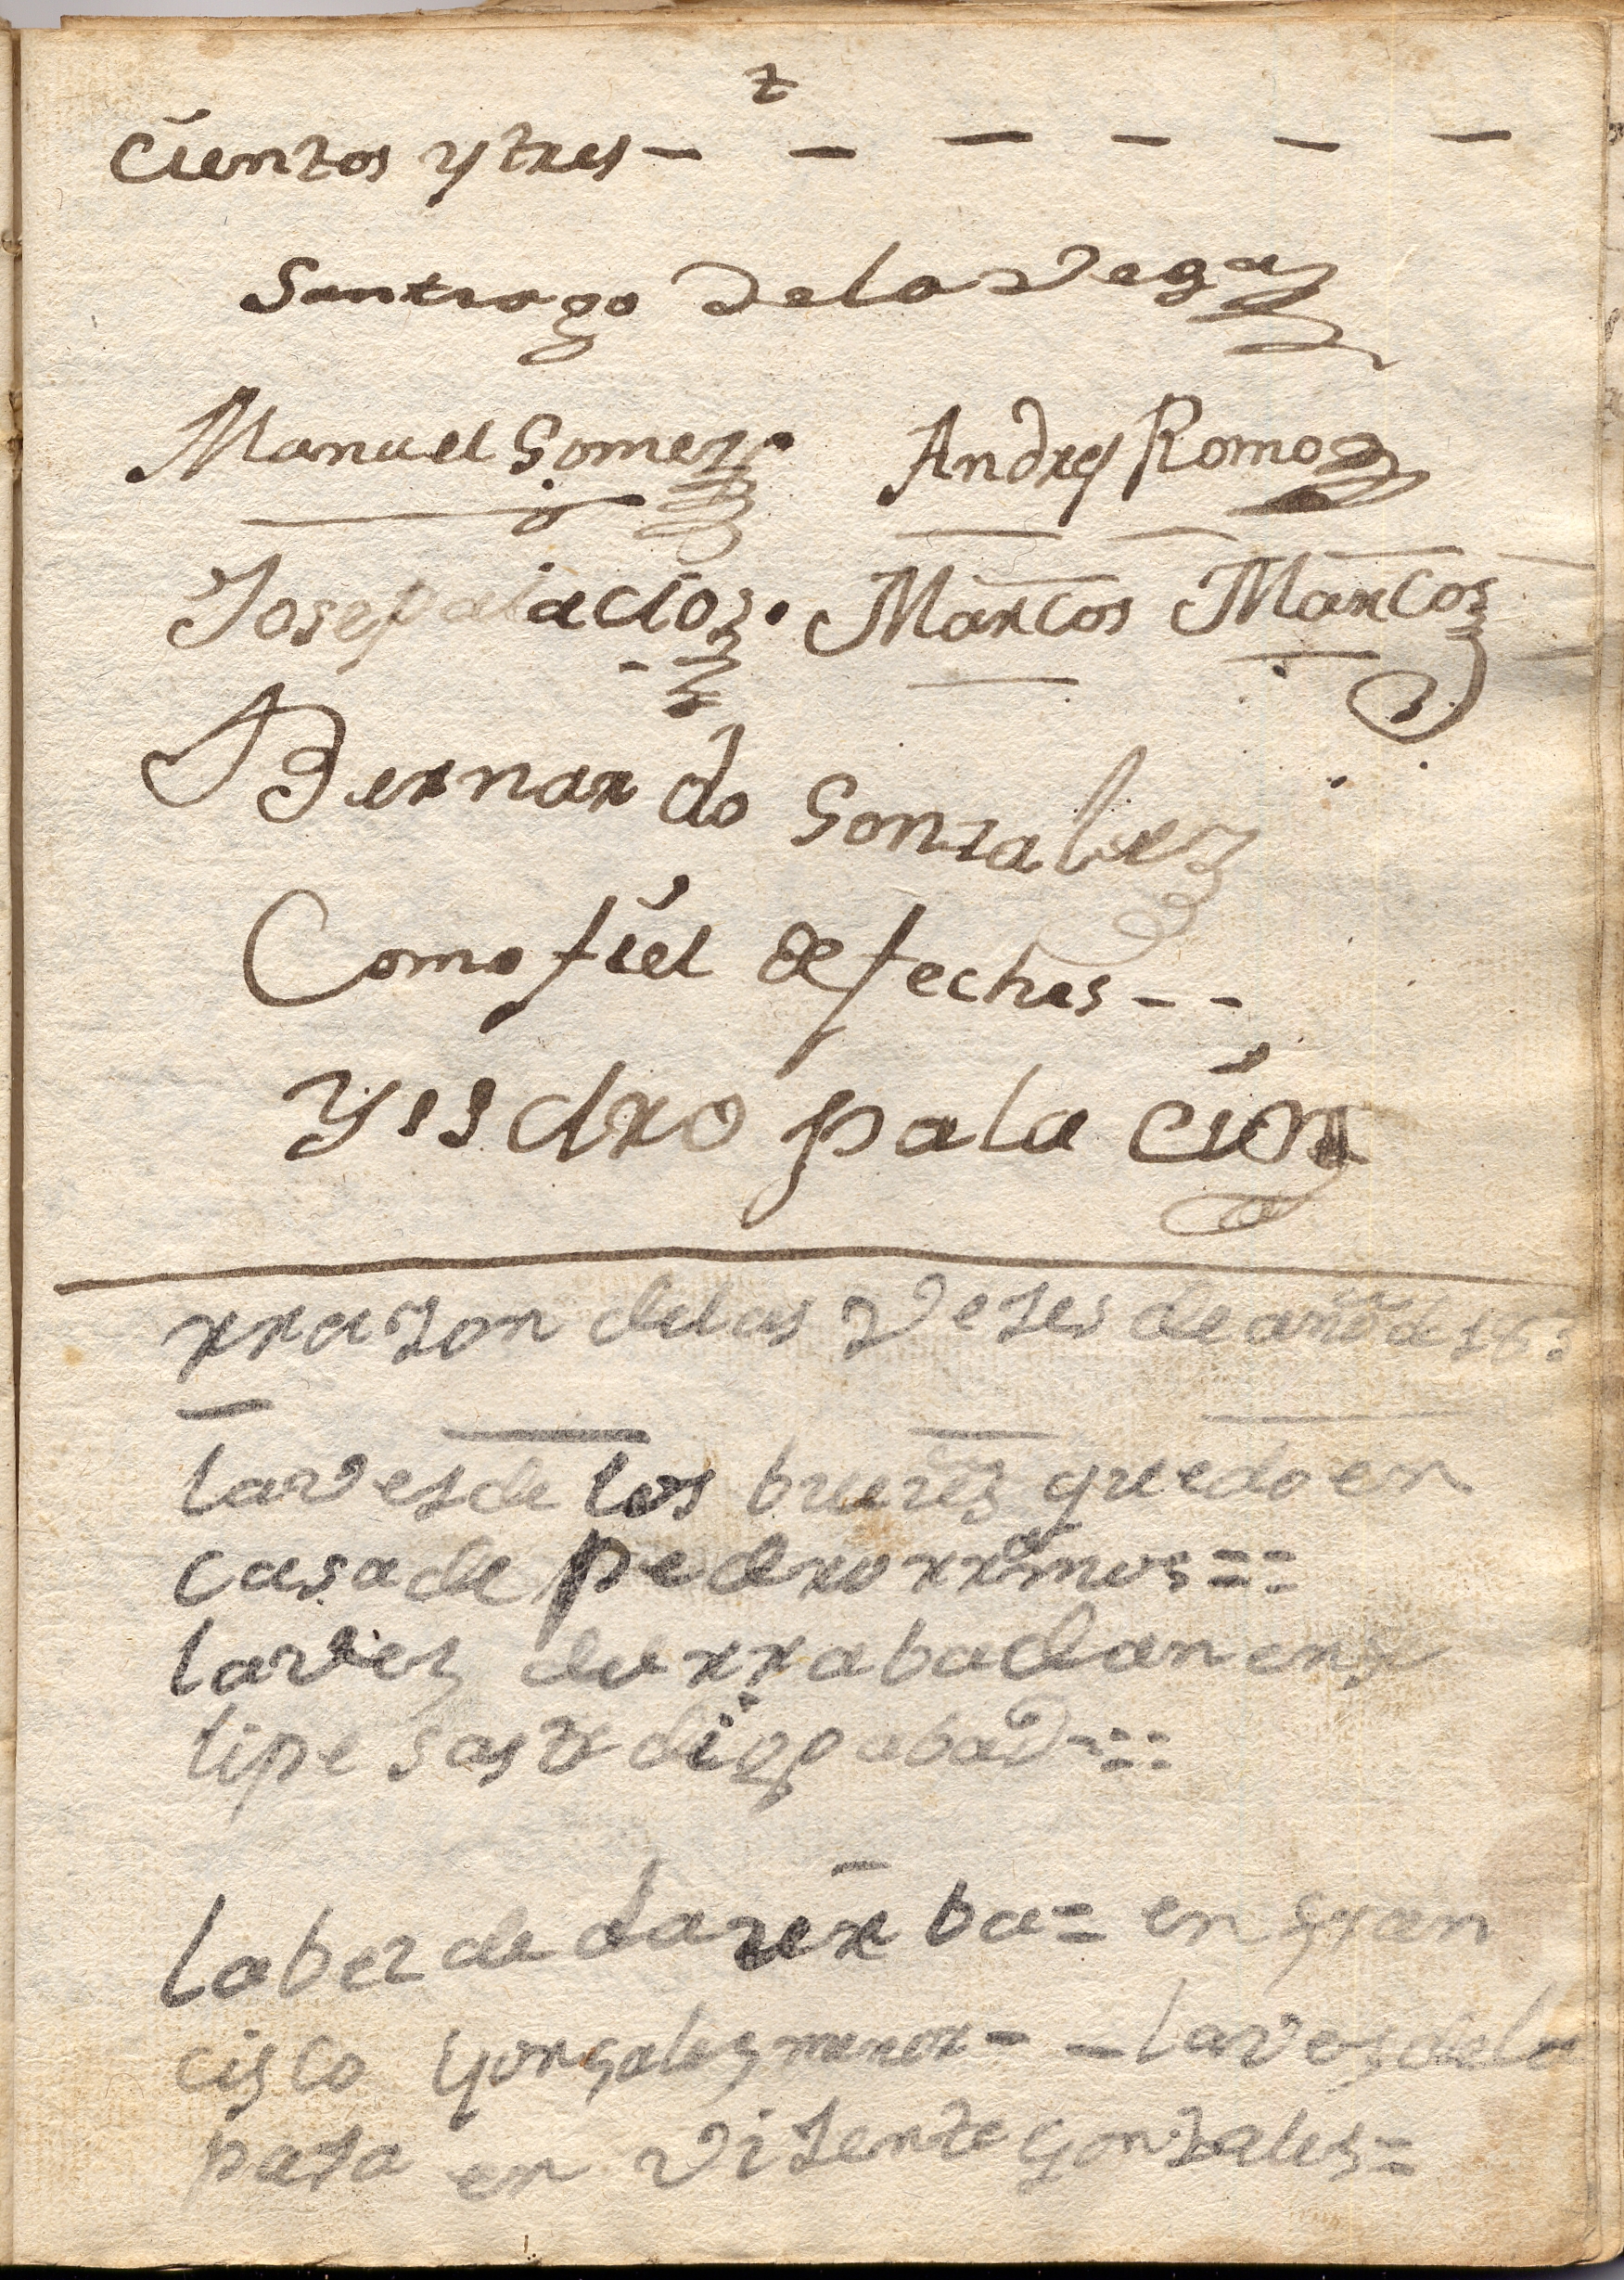 cientos y tres
Santiago de la Vega
Manuel Gomez Andres Romo
Jose palacios Marcos Marcos
Bernardo Gonzalez
Como fiel de fechas
Yisidro palacios
rrazon de las Vezes de año de
la vez de los bueiẽs quedo en
casa de pedro rramos ==
la vez de rrabadan en
lipe sastre abad
la bez de la = en fran
cisco gonzalez menor - la vez de la
en Vizente gonzales =